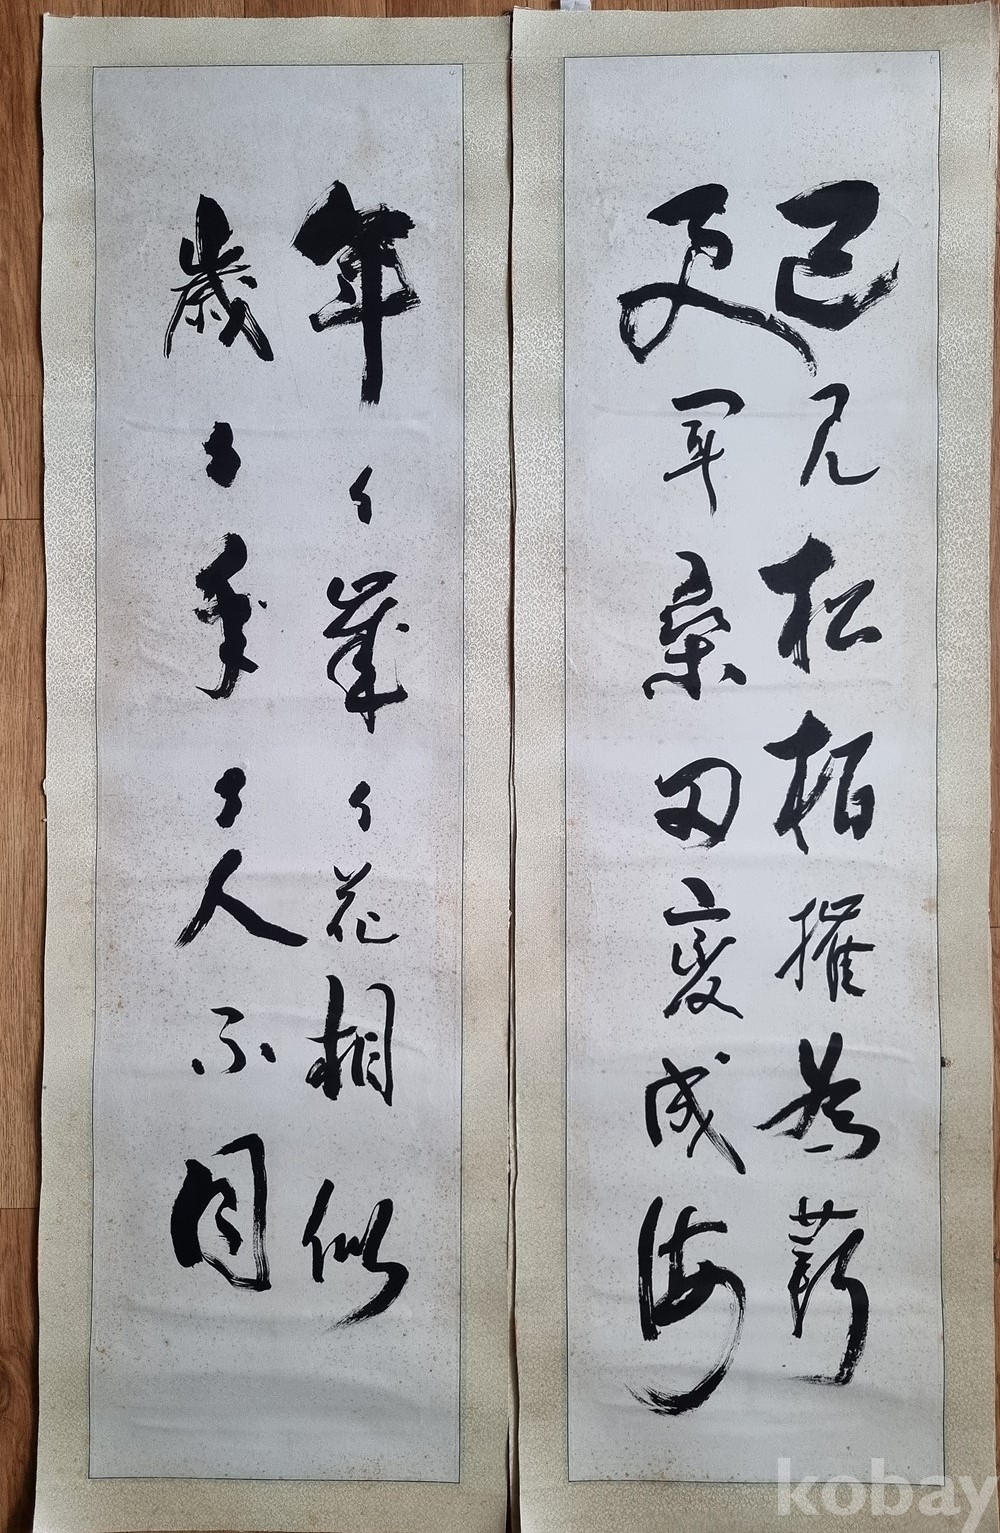 已見松柏摧為薪
更聞桑田變成海
年々歲々花相似
歲々年々人不同
kobay